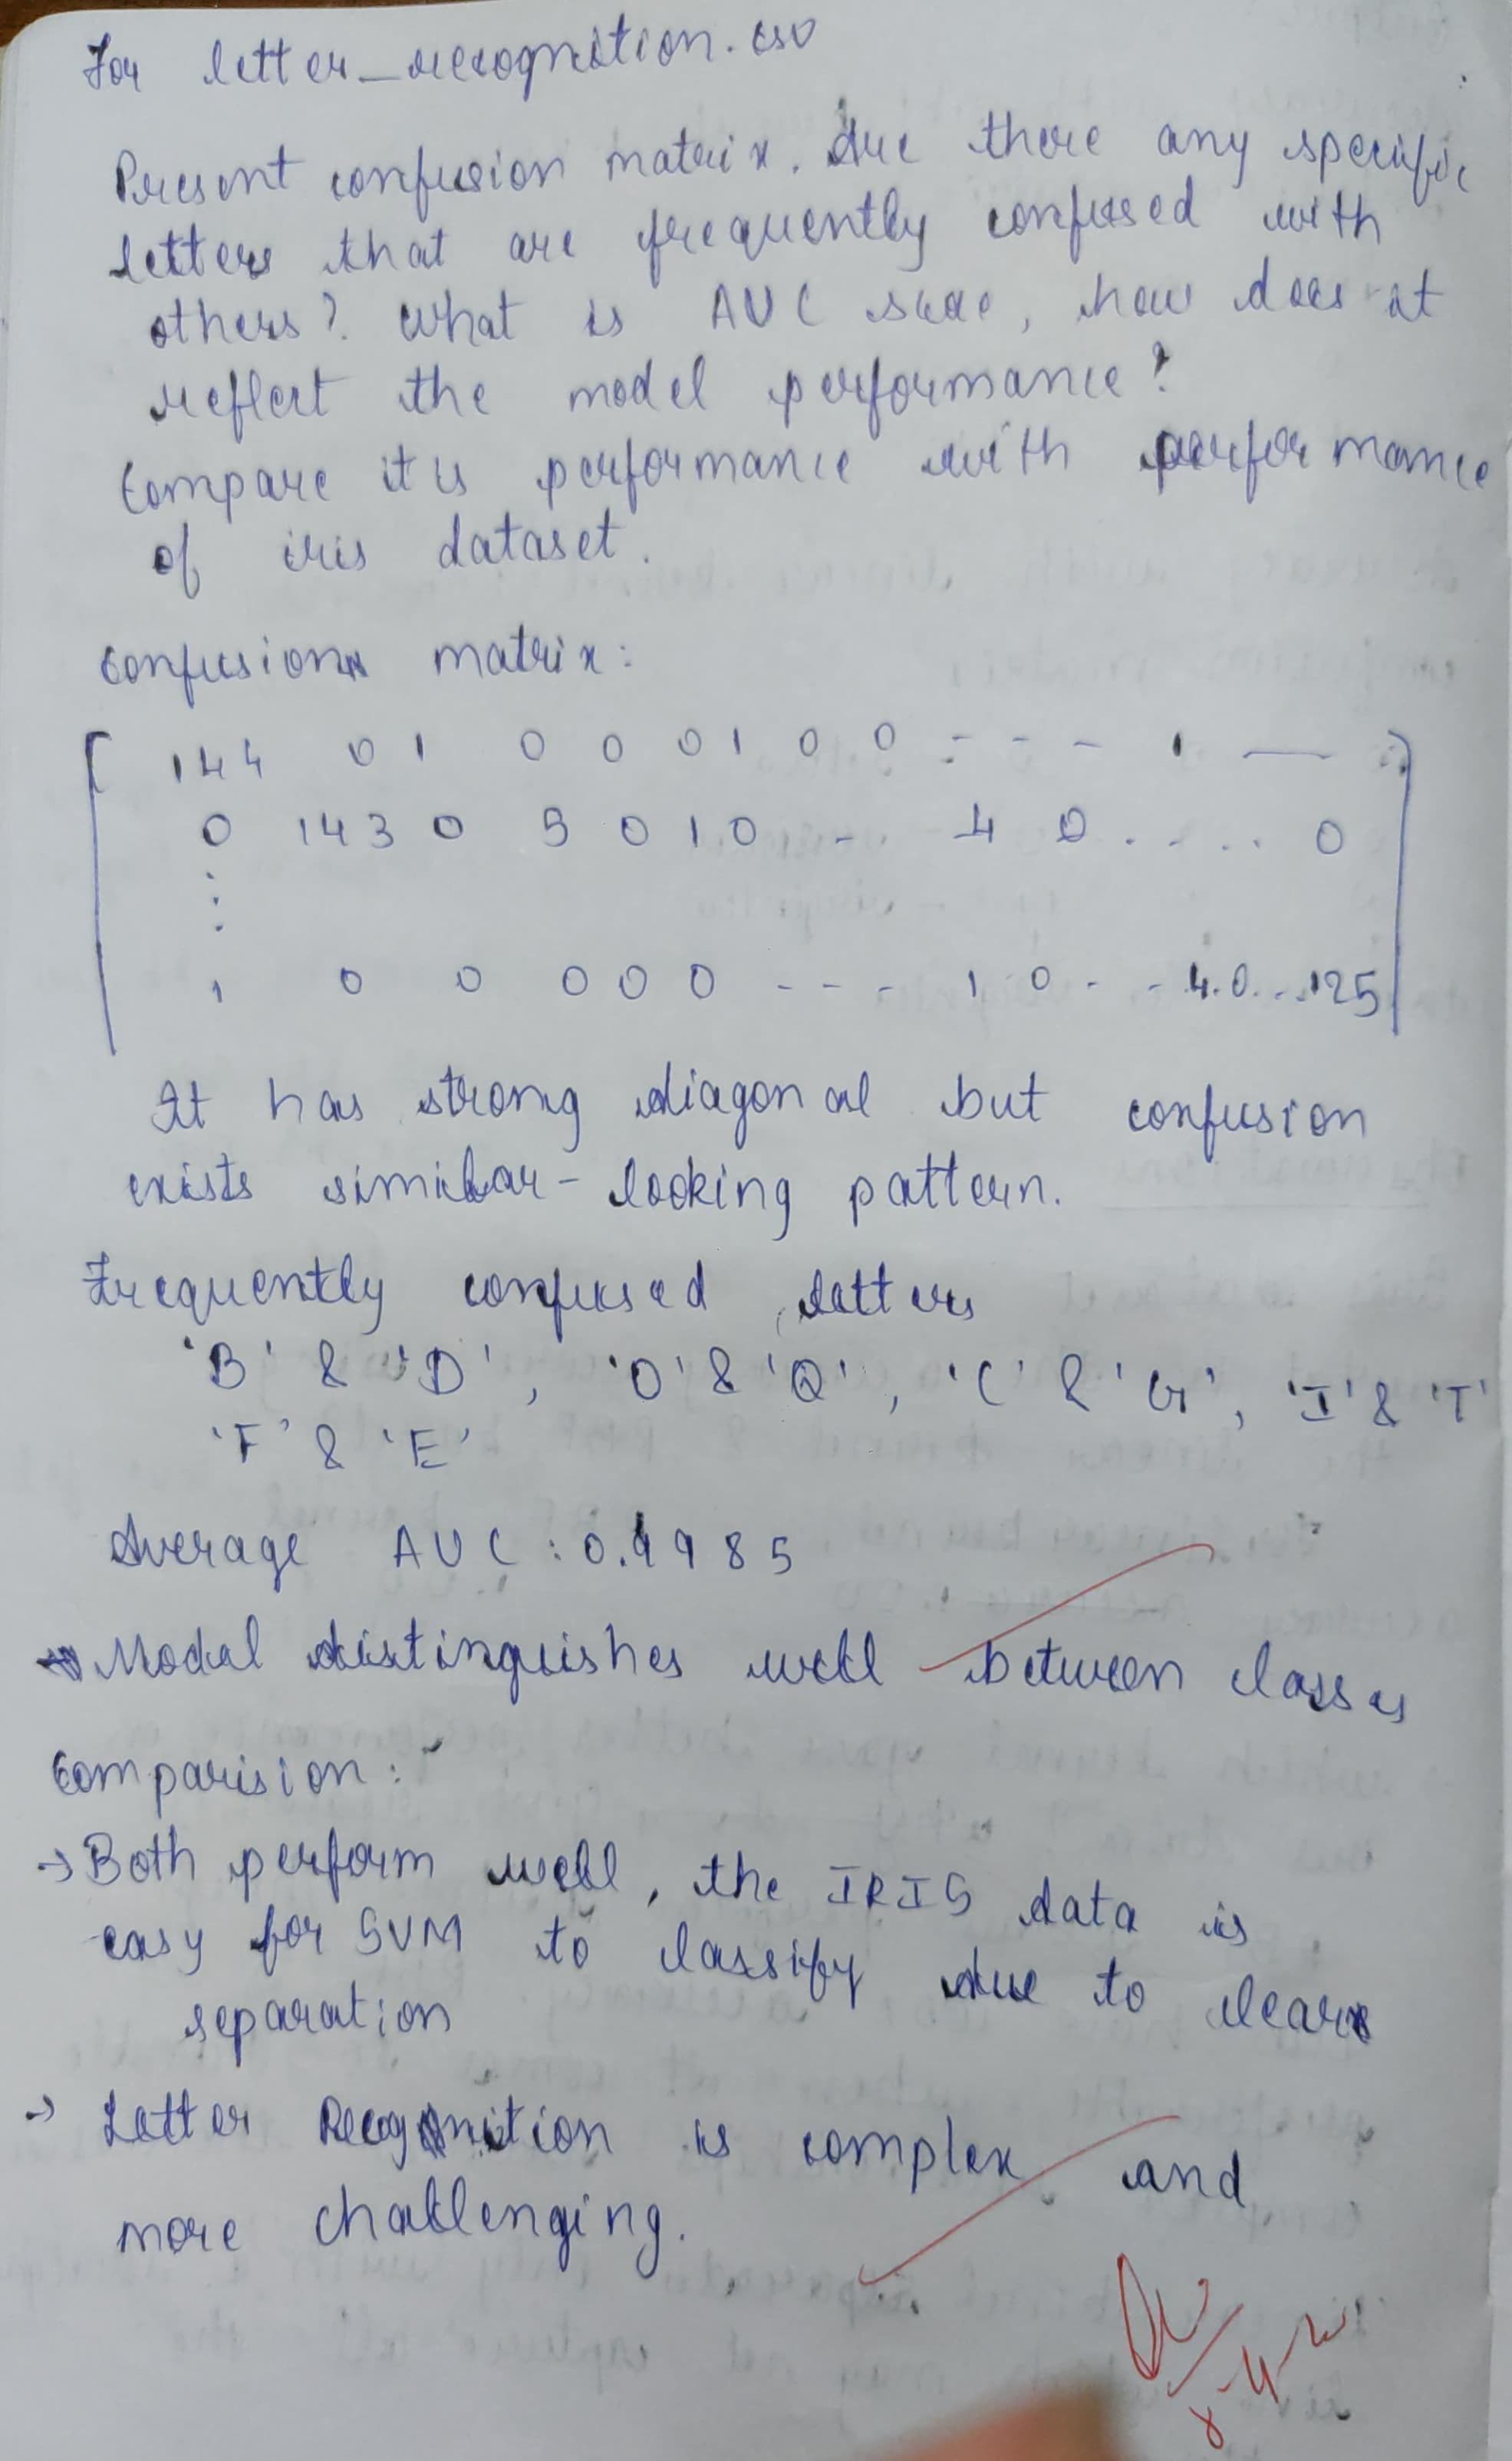 For letter_recognition.csv
Present confusion matrix. Are there any specific
letters that are frequently confused with
others? What is AUC score, how does it
reflect the model performance?
Compare it's performance with performance
of iris dataset.
confusion matrix:
144 0 1 0 0 0 1 0 0 - - - 1 —
0 143 0 9 0 1 0 - 4 0 . . . . . 0
⋮
1 0 0 0 0 0 - - - 1 0 - - 4.0...125
It has strong diagonal but confusion
exists similar-looking pattern.
Frequently confused letters
'B' & 'D', 'O' & 'Q', 'C' & 'G', 'I' & 'T'
'F' & 'E'
Average AUC : 0.9985
Model distinguishes well between classes
Comparision:
→ Both perform well, the IRIS data is
easy for SVM to classify due to clear
separation
→ Letter Recognition is complex and
more challenging.